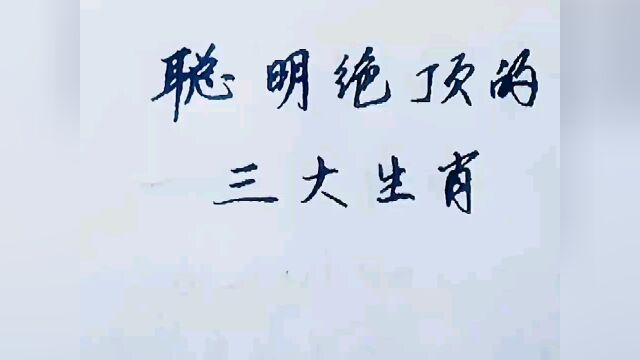 聪明绝顶的
三大生肖